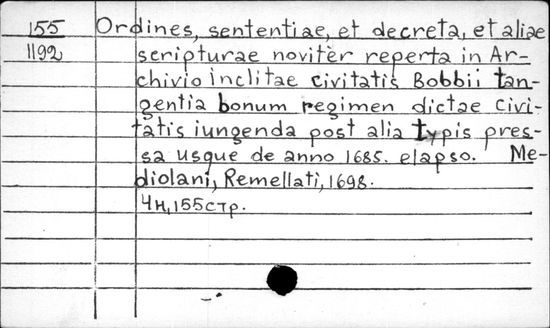 155 Ordines, sententiae, et decreta, et aliae
1192 scripturae novitèr reperta in Ar-
chivio inclitae civitatis Bobbii tan-
gentia bonum regimen dictae civi-
tatis iungenda post alia typis pres-
sa usque de anno 1685. elapso. Me-
diolani, Remellati, 1698.
4н, 155стр.